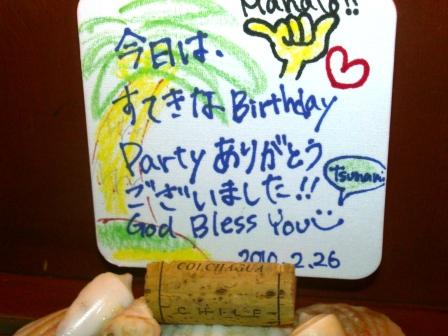 Mahalo!!
今日は、
すてきな Birthday
Party ありがとう
ございました!!
Tsunami
God Bless You
2010.2.26
COLCHAGUA
CHILE